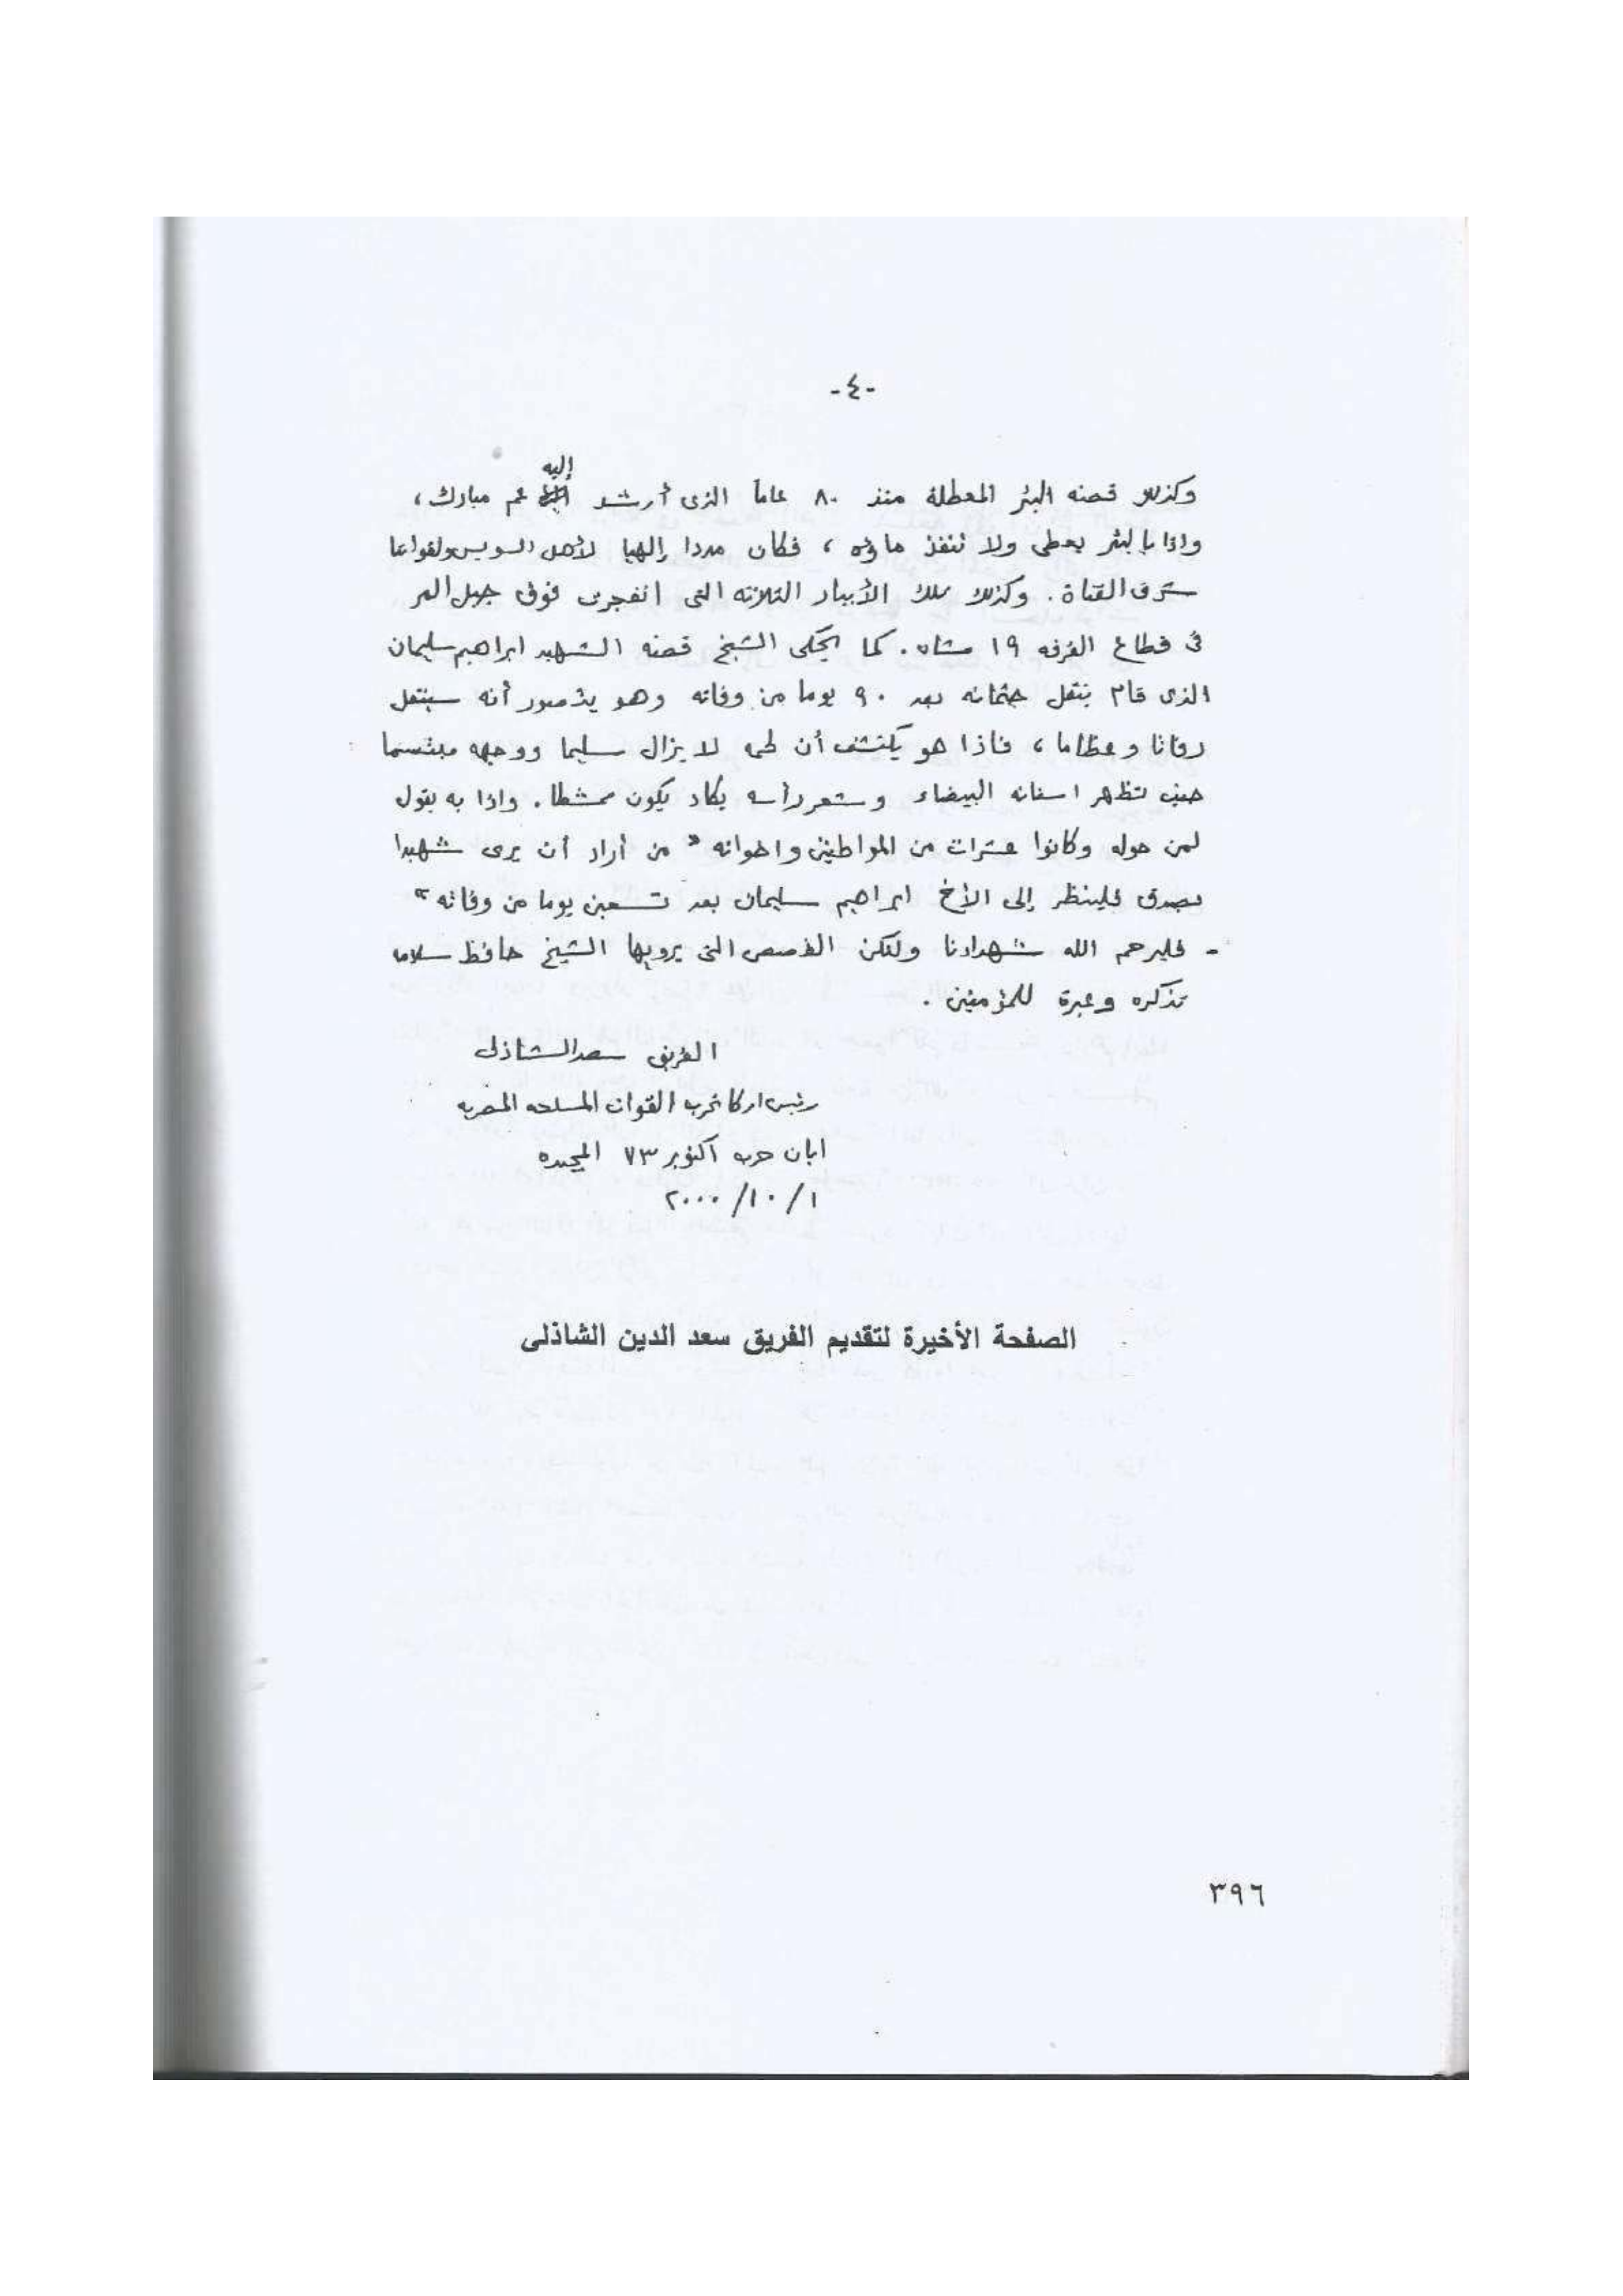 -٤-
وكذلك قصة البئر المعطلة منذ ٨٠ عاماً الذى أرشد إليه عم مبارك ،
واذا بالبئر يعطى ولا تنفذ ماؤه ، فكان مددا إلهيا لأهل السويس ولقواتنا
شرق القناة . وكذلك تلك الأبيار الثلاثة التى انفجرت فوق جبل المر
فى قطاع الفرقه ١٩ مشاه . كما يحكى الشيخ قصة الشهيد ابراهيم سليمان
الذى قام بنقل جثمانه بعد ٩٠ يوما من وفاته وهو يتصور أنه سينقل
رفاتا وعظاما ، فاذا هو يكتشف أن لحمه لا يزال سليما ووجهه مبتسما
حيث تظهر اسنانه البيضاء وشعر رأسه يكاد يكون ممشطا . واذا به يقول
لمن حوله وكانوا عشرات من المواطنين واخوانه " من أراد أن يرى شهيدا
بصدق فلينظر إلى الأخ ابراهيم سليمان بعد تسعين يوما من وفاته "
- فليرحم الله شهدادنا ولتكن القصص التى يرويها الشيخ حافظ سلامه
تذكره وعبرة للمؤمنين .
الفريق سعد الشاذلى
رئيس اركان حرب القوات المسلحه المصريه
ابان حرب أكتوبر ٧٣ المجيده
١ / ١٠ / ٢٠٠٠
الصفحة الأخيرة لتقديم الفريق سعد الدين الشاذلى
٣٩٦